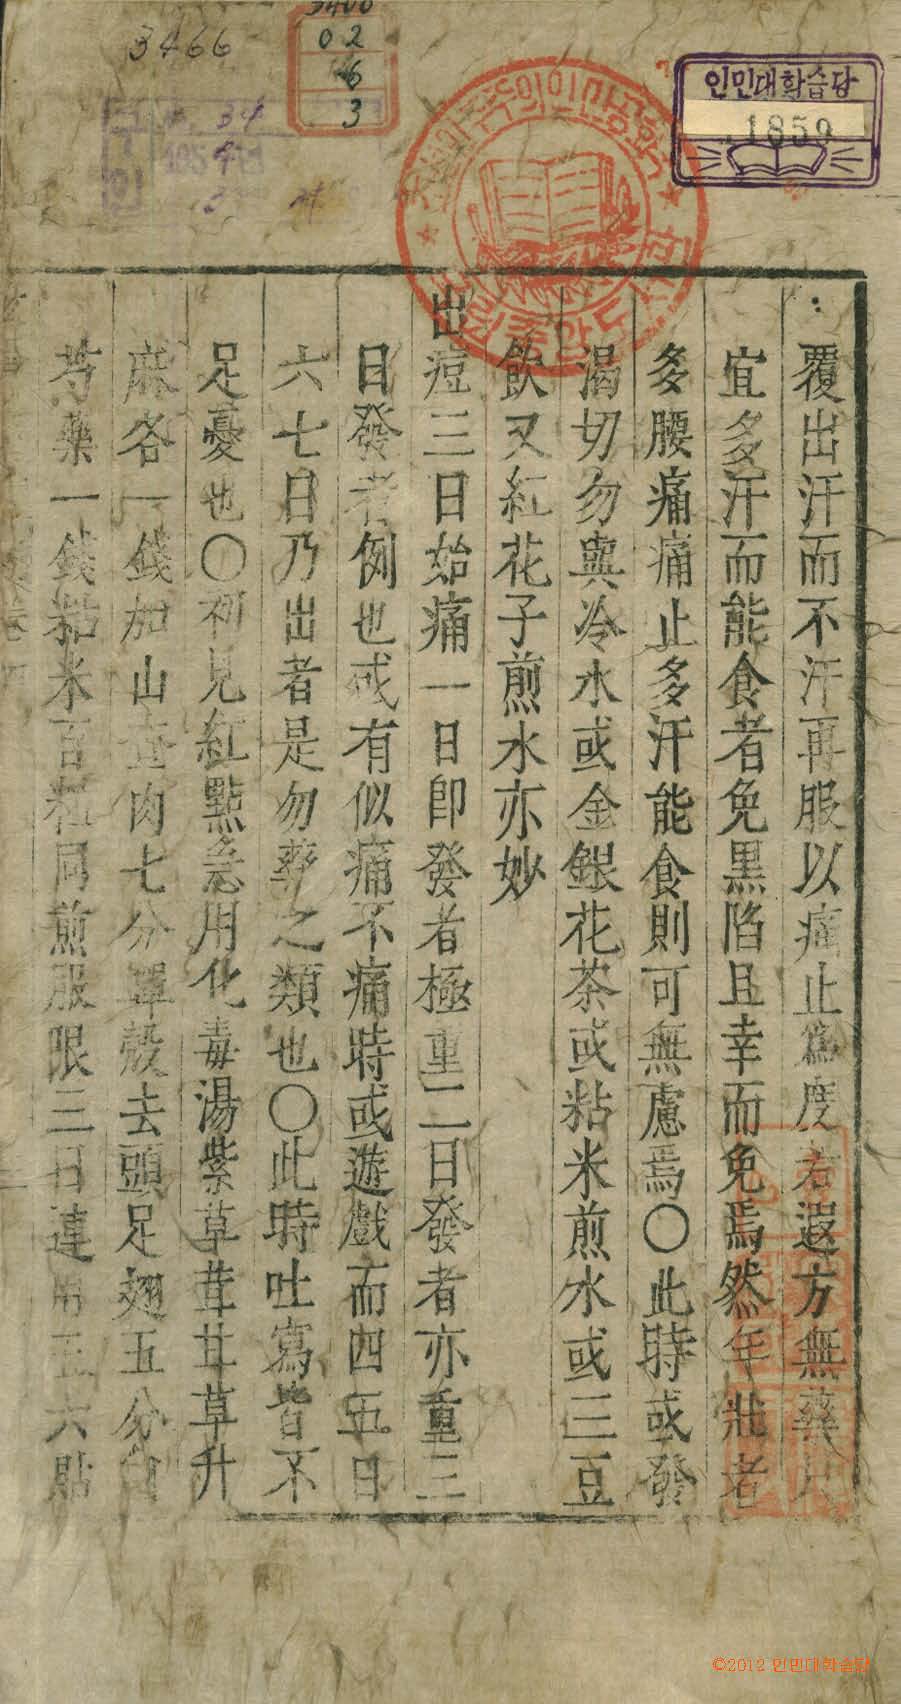 3466
02
6
3
인민대학습당
1859
覆出汗而不汗再服以痛止爲度若遐方無藥只
宜多汗而能食者免黑陷且幸而免焉然年壯者
多腰痛痛止多汗能食則可無慮焉〇此時或發
渴切勿與冷水或金銀花茶或粘米煎水或三豆
飮又紅花子煎水亦妙
出痘三日始痛一日卽發者極重二日發者亦重三
日發者例也或有似痛不痛時或遊戲而四五日
六七日乃出者是勿藥之類也〇此時吐瀉皆不
足憂也〇初見紅點急用化毒湯紫草茸甘草升
麻各一錢加山查肉七分蟬殼去頭足翅五分白
芍藥一錢粘米百粒同煎服限三日連用五六貼
©2012 인민대학습당